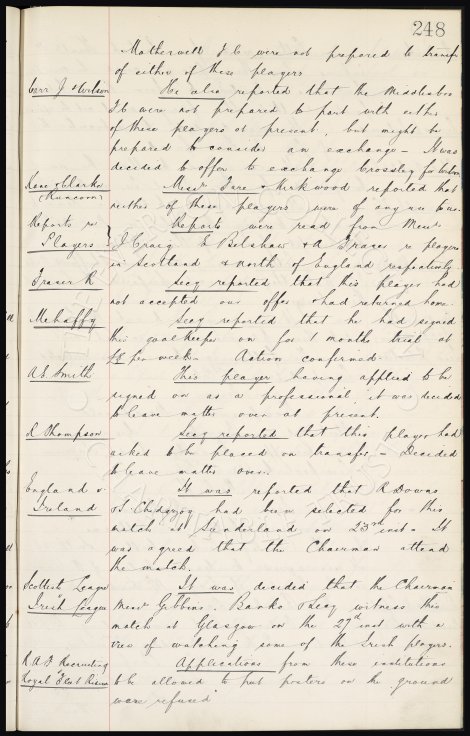 248
Motherwell F C were not prepared to transfer
of either of these players
Carr J & Wilson He also reported that the Middlesbro
F C were not prepared to part with either
of these players at present, but might be
prepared to consider an exchange - It was
decided to offer to exchange Crossley for Wilson
Kane & Clarke Messrs Tare & Kirkwood reported that
(Runcorn) neither of these players were of any use to us.
Reports re Reports were read from Messrs
Players J. Craig & Belshaw & A Frazer re players
in Scotland & North of England respectively
Frazer R Secy reported that this player had
not accepted our offer & had returned home.
Mehaffy Secy reported that he had signed
this goalkeeper on for 1 months trial at
£8 per week. Action confirmed.
A E Smith This player having applied to be
signed on as a professional it was decided
to leave matter over at present.
R Thompson Secy reported that this player had
asked to be placed on transfer - Decided
to leave matter over.
England v It was reported that R Downs
Ireland & S. Chedgzoy had been selected for this
match at Sunderland on 23rd inst - It
was agreed that the Chairman attend
the match.
Scottish League It was decided that the Chairman
v Irish League Messrs Gibbins, Banks & Secy witness this
match at Glasgow on the 27th inst with a
view of watching some of the Irish players.
R A F Recruiting Applications from these institutions
Royal Fleet Reserve to be allowed to put posters on the ground
were refused